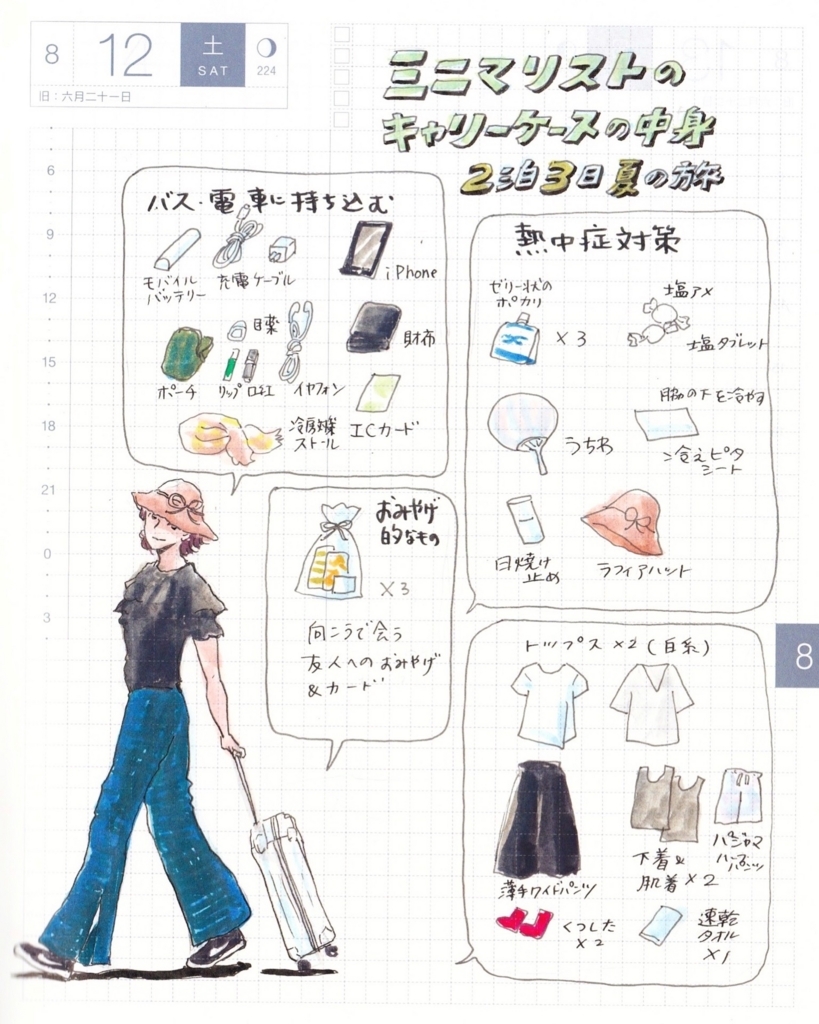 8 12 土 SAT 224
旧:六月二十一日
ミニマリストの
キャリーケースの中身
2泊3日夏の旅
6
9
12
15
18
21
0
3
バス・電車に持ち込む
モバイル
バッテリー
充電ケーブル
iPhone
目薬
財布
ポーチ
リップ
口紅
イヤフォン
冷房対策
ストール
ICカード
熱中症対策
ゼリー状の
ポカリ
×3
塩アメ
塩タブレット
うちわ
脇の下を冷やす
冷えピタ
シート
日焼け
止め
ラフィアハット
おみやげ
的なもの
×3
向こうで会う
友人へのおみやげ
&カード
トップス×2(白系)
薄手ワイドパンツ
下着&
肌着×2
パジャマ
ハーフ
パンツ
くつした
×2
速乾
タオル
×1
8